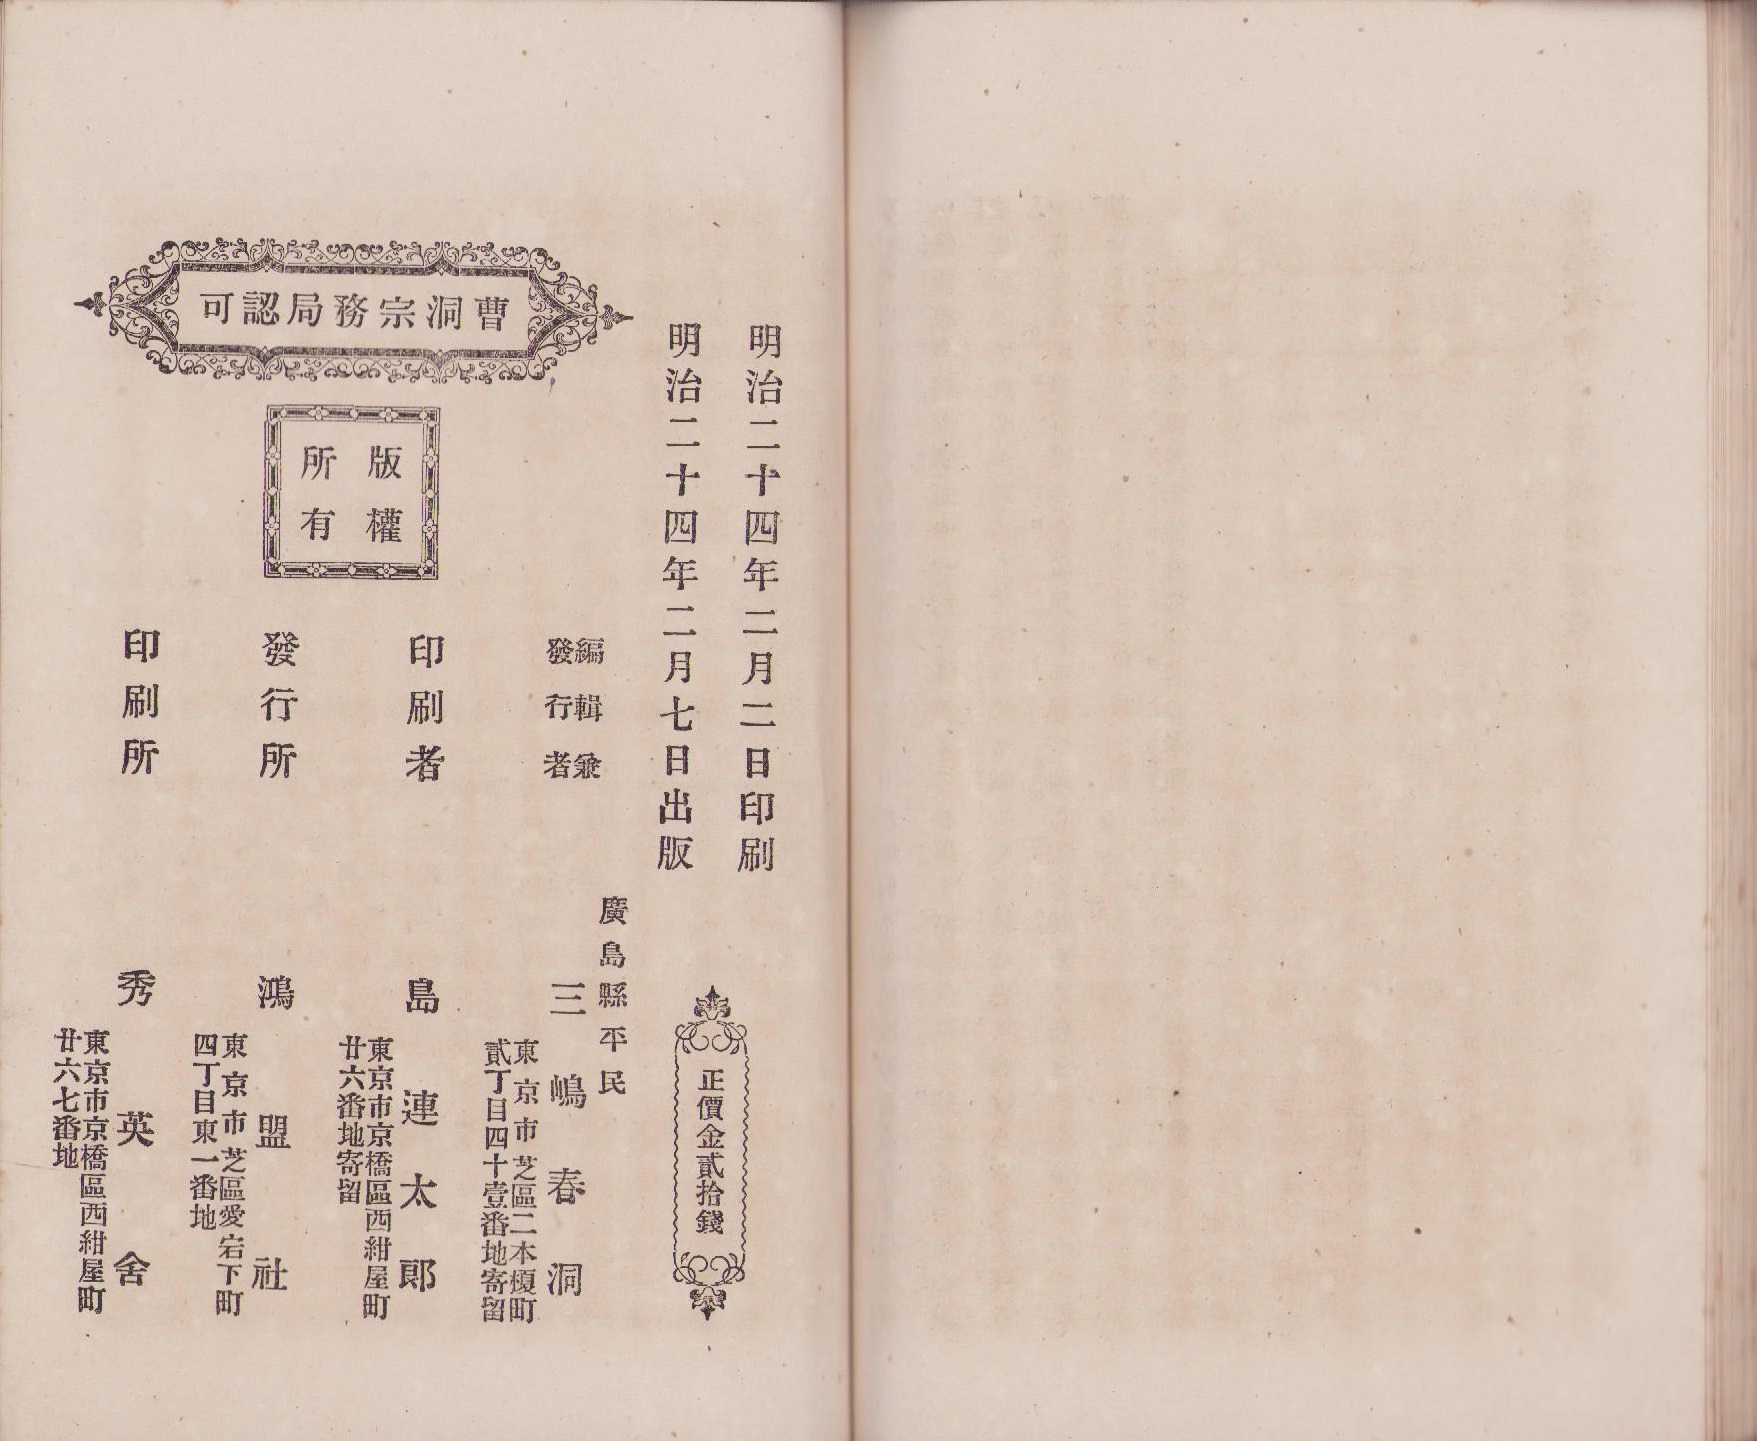 明治二十四年二月二日印刷
明治二十四年二月七日出版
正價金貳拾錢
曹洞宗務局認可
版權
所有
編輯兼
發行者
廣島縣平民
三嶋春洞
東京市芝區二本榎町
貳丁目四十壹番地寄留
印刷者
島連太郎
東京市京橋區西紺屋町
廿六番地寄留
發行所
鴻盟社
東京市芝區愛宕下町
四丁目東一番地
印刷所
秀英舍
東京市京橋區西紺屋町
廿六七番地